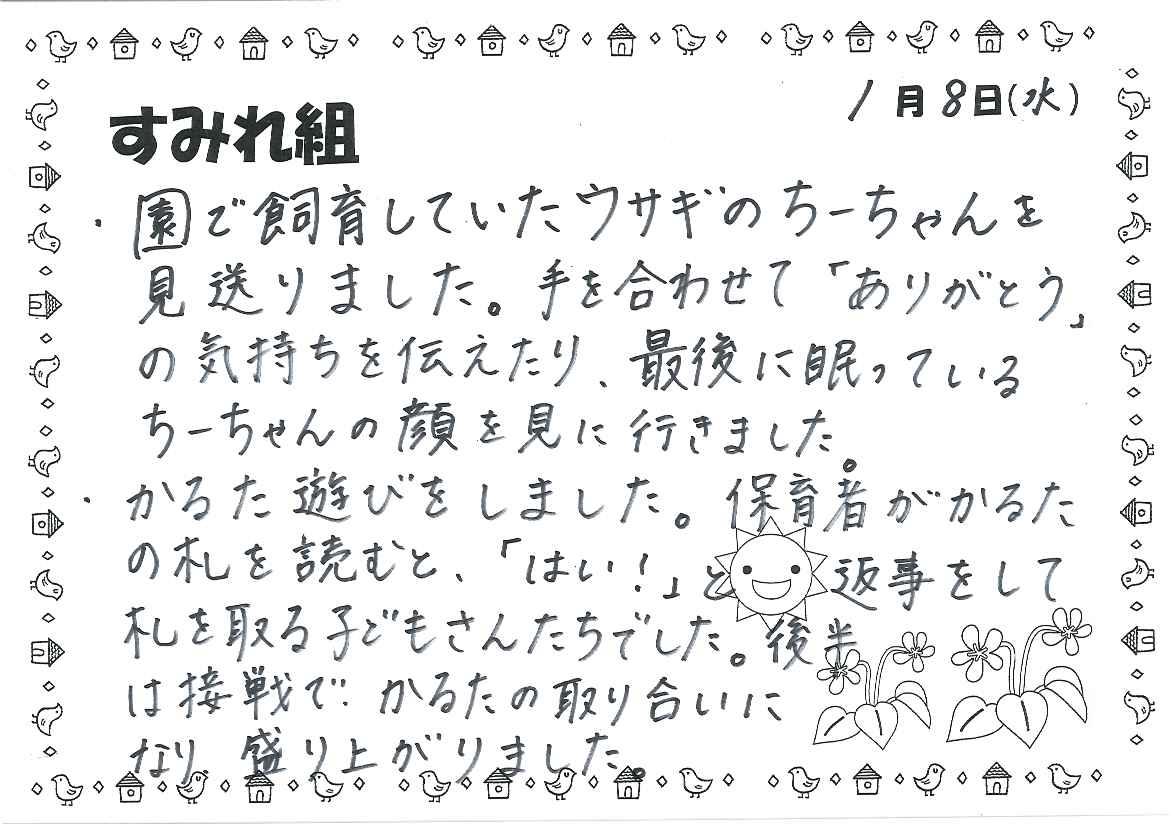 1月8日(水)
すみれ組
・園で飼育していたウサギのちーちゃんを
見送りました。手を合わせて「ありがとう」
の気持ちを伝えたり、最後に眠っている
ちーちゃんの顔を見に行きました。
・かるた遊びをしました。保育者がかるた
の札を読むと、「はい!」と返事をして
札を取る子どもさんたちでした。後半
は接戦で、かるたの取り合いに
なり盛り上がりました。